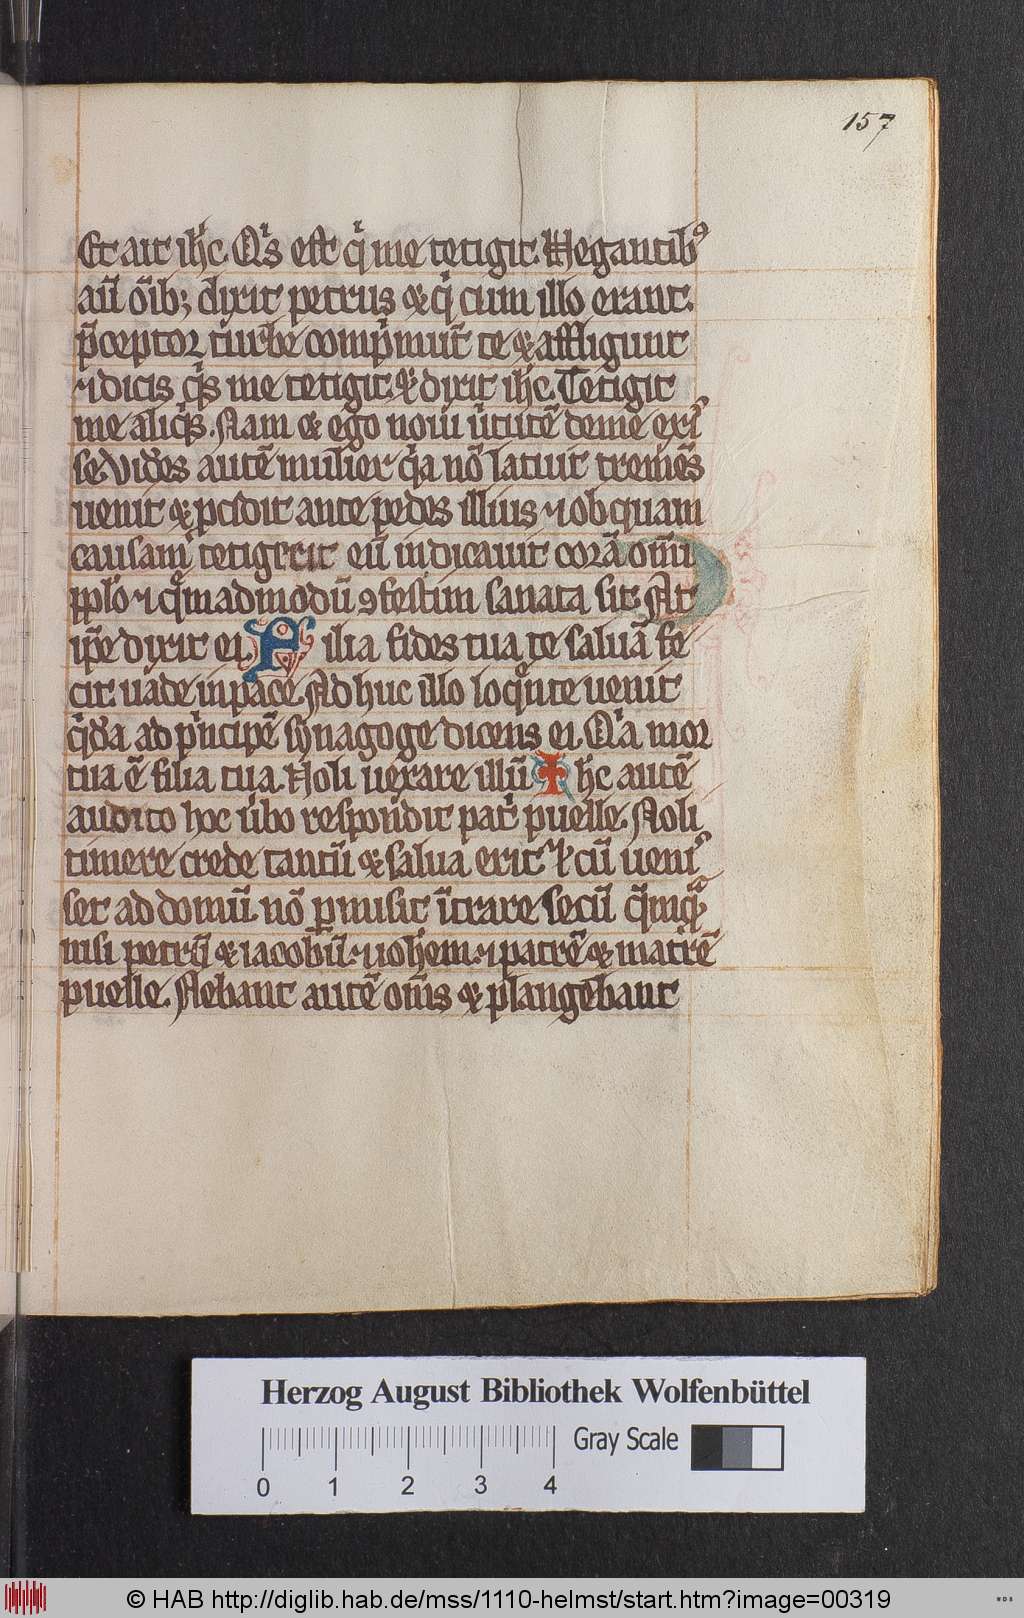 157
Et ait ih̅c. Qͥs est qͥ me tetigit. Negantibꝰ
aūt o̅ib; dixit petrus & qͥ cum illo erant.
p̅ceptor turbe comp̍mūt te & affligunt
⁊ dicis qͥs me tetigit. & dixit ih̅c. Tetigit
me aliqͥs. Nam & ego noui u̍tutē de me exi
se. Vides autē mulier qͥa nō latuit tremēs
uenit & pcidit ante pedes illius ⁊ ob quam
causam tetigerit eū indicauit corā om̅i
pplo ⁊ qͤmadmodū ꝯfestim sanata sit. At
ip̅e dixit ei. Filia fides tua te saluā fe
cit. uade in pace. Ad huc illo loqͤnte uenit
qͥdā ad p̍ncipē synagoge dicens ei. Qͥa mor
tua ē filia tua. Noli uexare illū. Ih̅c autē
audito hoc u̍bo respondit pat̍ puelle. Noli
timere crede tantū & salua erit. Et cū ueni
set ad domū nō ꝑmisit ītrare secū qͣmqͣ
nisi petrū & iacobū ⁊ ioh̅em ⁊ patrē & matrē
puelle. Flebant autē om̅s & plangebant
Herzog August Bibliothek Wolfenbüttel
Gray Scale
0 1 2 3 4
© HAB http://diglib.hab.de/mss/1110-helmst/start.htm?image=00319